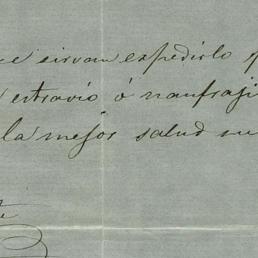 se sirvan expedirlo
estravio ó naufraji
la mejor salud su